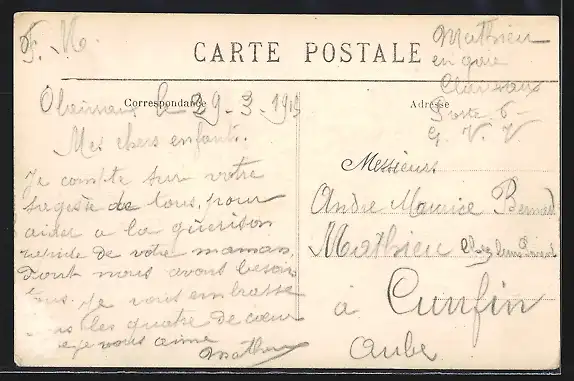 F. M.
CARTE POSTALE
Mathieu
en gare
Clairvaux
Poste 6
G. V. V.
Correspondance
Adresse
le 29-3-1915
Mes chers enfants.
Je compte sur votre
sagesse de tous, pour
aider a la guérison
rapide de votre maman,
dont nous avons besoin
tous. Je vous embrasse
les quatre de cœur
je vous aime
Mathieu
Messieurs
André Maurice Bernard
Mathieu chez
à Cunfin
Aube